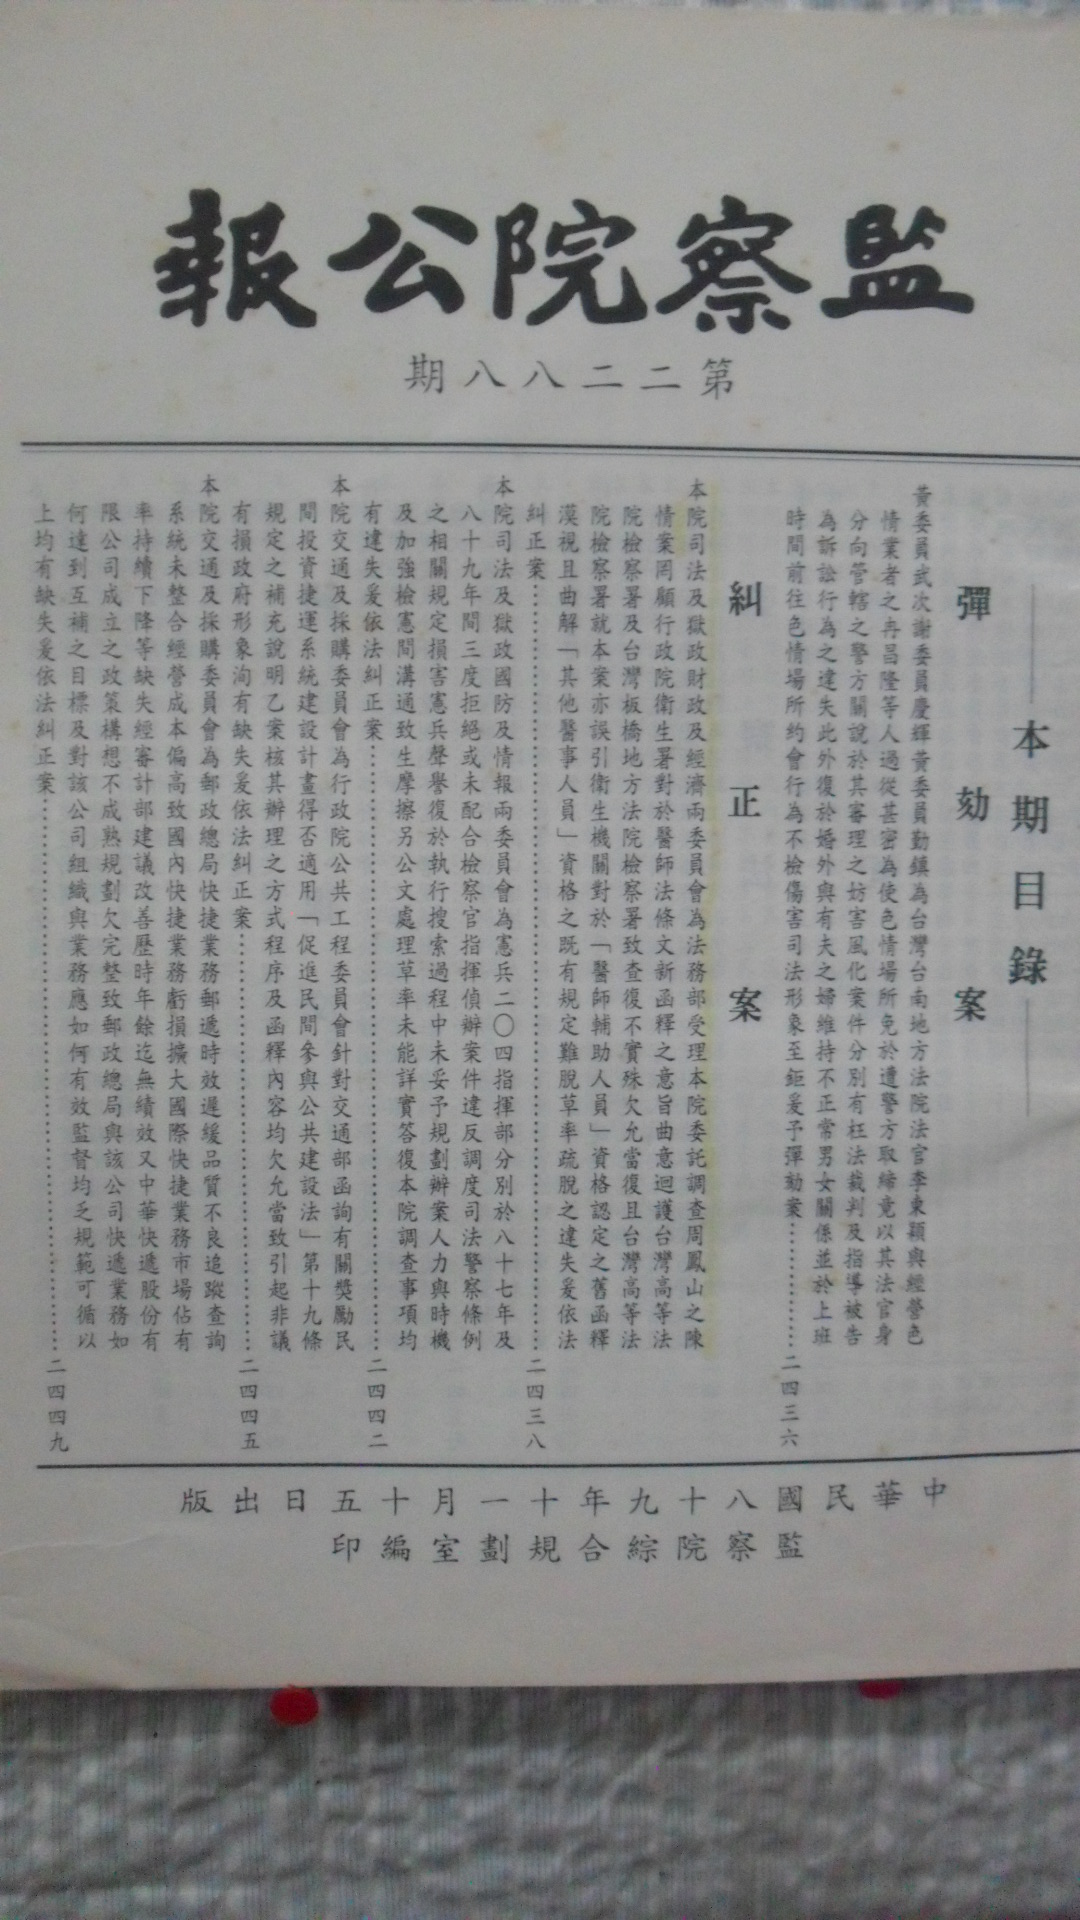 監察院公報
第二二八八期
本期目錄
彈劾案
黃委員武次謝委員慶輝黃委員勤鎮為台灣台南地方法院法官李東穎與經營色
情業者之冉昌隆等人過從甚密為使色情場所免於遭警方取締竟以其法官身
分向管轄之警方關說於其審理之妨害風化案件分別有枉法裁判及指導被告
為訴訟行為之違失此外復於婚外與有夫之婦維持不正常男女關係並於上班
時間前往色情場所約會行為不檢傷害司法形象至鉅爰予彈劾案…………二四三六
糾正案
本院司法及獄政財政及經濟兩委員會為法務部受理本院委託調查周鳳山之陳
情案罔顧行政院衛生署對於醫師法條文新函釋之意旨曲意迴護台灣高等法
院檢察署及台灣板橋地方法院檢察署致查復不實殊欠允當復且台灣高等法
院檢察署就本案亦誤引衛生機關對於「醫師輔助人員」資格認定之舊函釋
漠視且曲解「其他醫事人員」資格之既有規定難脫草率疏脫之違失爰依法
糾正案…………二四三八
本院司法及獄政國防及情報兩委員會為憲兵二〇四指揮部分別於八十七年及
八十九年間三度拒絕或未配合檢察官指揮偵辦案件違反調度司法警察條例
之相關規定損害憲兵聲譽復於執行搜索過程中未妥予規劃辦案人力與時機
及加強檢憲間溝通致生摩擦另公文處理草率未能詳實答復本院調查事項均
有違失爰依法糾正案…………二四四二
本院交通及採購委員會為行政院公共工程委員會針對交通部函詢有關獎勵民
間投資捷運系統建設計畫得否適用「促進民間參與公共建設法」第十九條
規定之補充說明乙案核其辦理之方式程序及函釋內容均欠允當致引起非議
有損政府形象洵有缺失爰依法糾正案…………二四四五
本院交通及採購委員會為郵政總局快捷業務郵遞時效遲緩品質不良追蹤查詢
系統未整合經營成本偏高致國內快捷業務虧損擴大國際快捷業務市場佔有
率持續下降等缺失經審計部建議改善歷時年餘迄無績效又中華快遞股份有
限公司成立之政策構想不成熟規劃欠完整致郵政總局與該公司快遞業務如
何達到互補之目標及對該公司組織與業務應如何有效監督均乏規範可循以
上均有缺失爰依法糾正案…………二四四九
中華民國八十九年十一月十五日出版
監察院綜合規劃室編印